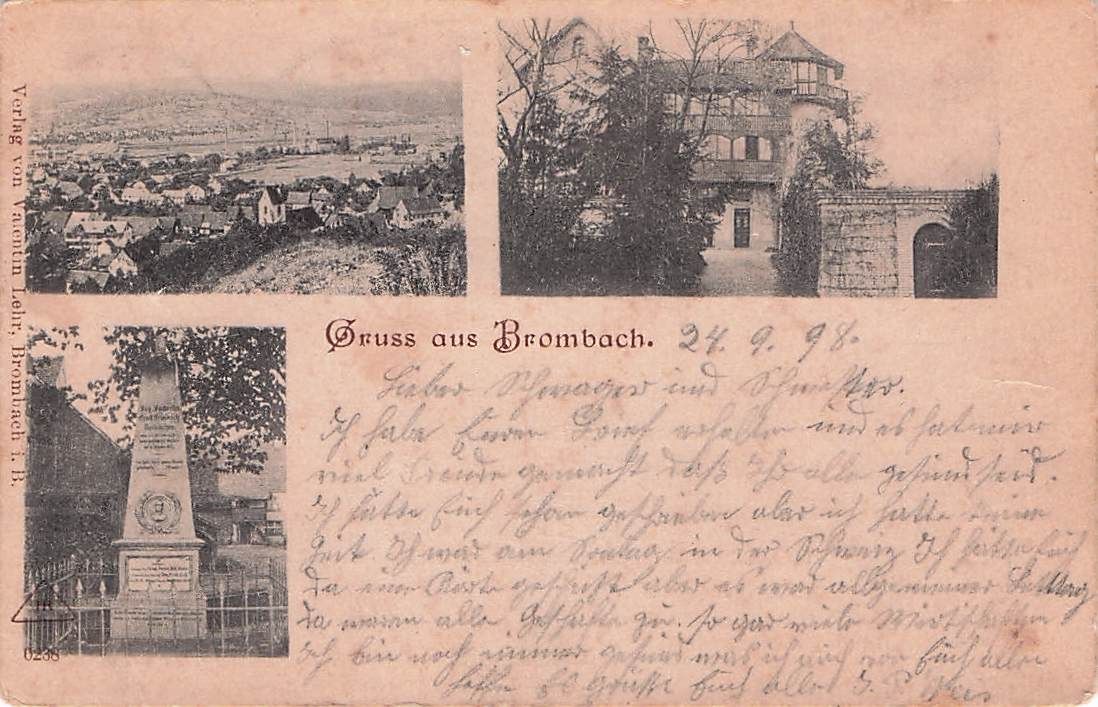 Verlag von Valentin Lehr, Brombach i. B.
Gruss aus Brombach.
24. 9. 98.
Lieber Schwager und Schwester.
Ich habe Euren Brief erhalten und es hat mir
viel Freude gemacht daß Ihr alle gesund seid.
Ich hätte Euch schon geschrieben aber ich hatte keine
Zeit Ich war am Sontag in der Schweiz Ich hätte Euch
da eine Karte geschickt aber es war allgemeiner Bettag
da waren alle Geschäfte zu. so gar viele Wirtschaften
Ich bin noch immer gesund was ich auch von Euch allen
hoffe Es Grüßt Euch alle
0238